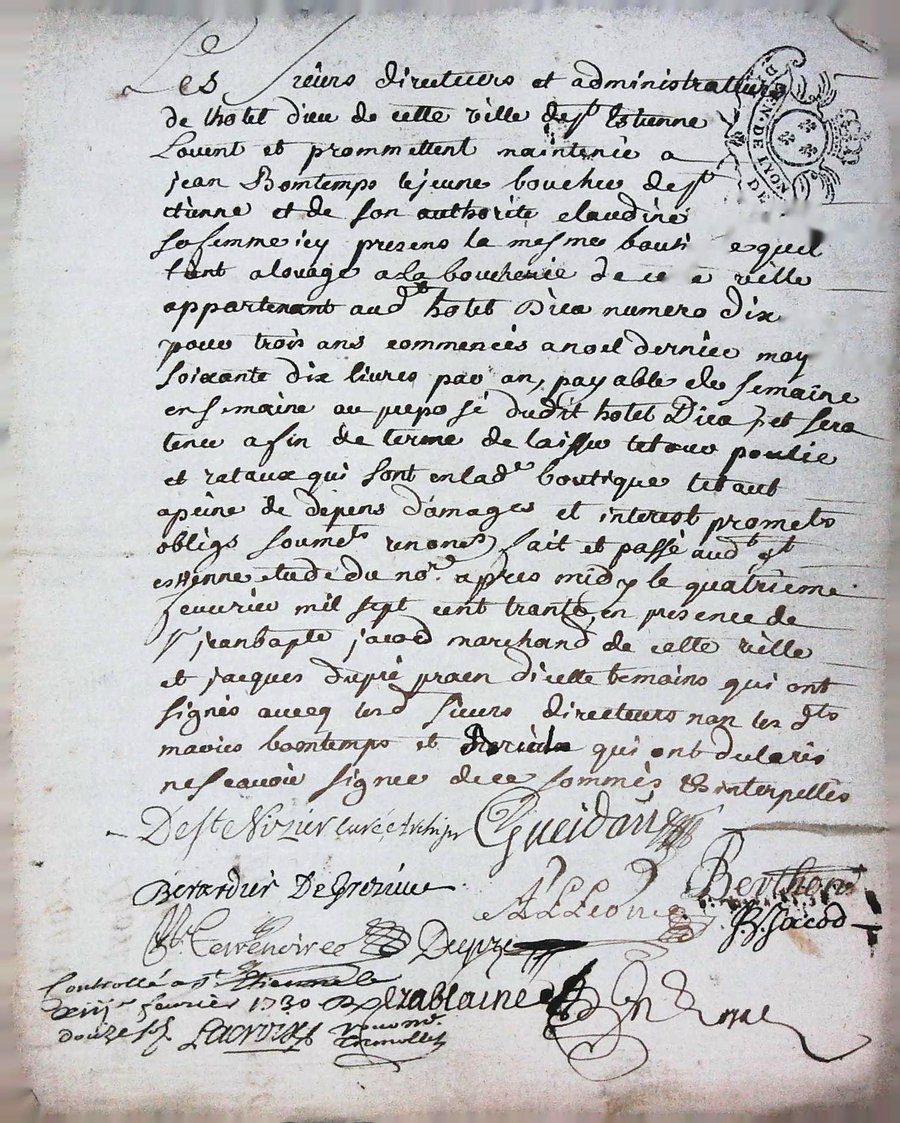 Les Sieurs directeurs et administrateurs
de lhotel dieu de cette ville de st Estienne
Louent et promettent maintenir a
jean Bomtemps le jeune boucher de st
etienne et de son authorite claudine
sa femme icy presens la mesme bouti equil
tient a louage a la boucherie de ce e ville
appartenant aud hotel Dieu numero dix
pour trois ans commencés a noel dernier moy
soixante dix livres par an, payable de semaine
en semaine au preposé dudit hotel Dieu, et sera
tenu a fin de terme de laisser poulie
et rataux qui sont en lade boutique
a peine de dépens d'amages et interest promets
obligs soumets renones fait et passé aud st
estienne etude du nore apres midy le quatrieme
feuvrier mil sept cent trante, en presence de
sr jean bapte jacod marchand de cette ville
et jacques dupré praen dicelle temoins qui ont
signés avecq lesd sieurs directeurs non les
mariés bontemps et qui ont declaré
ne scavoir signer de ce sommés & interpellés
De St Nizier curé
Gueidan
Berardier De Grezieu
ALLéon
Berthon
Terrenoire
Dupré
J.B. Jacod
Controllé a st Etienne le
xiije fevrier 1730 R
douze s
Lacroix
GEN. DE LYON